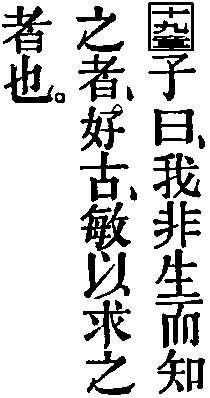 十九章子曰、我非生而知
之者、好古、敏以求之
者也。